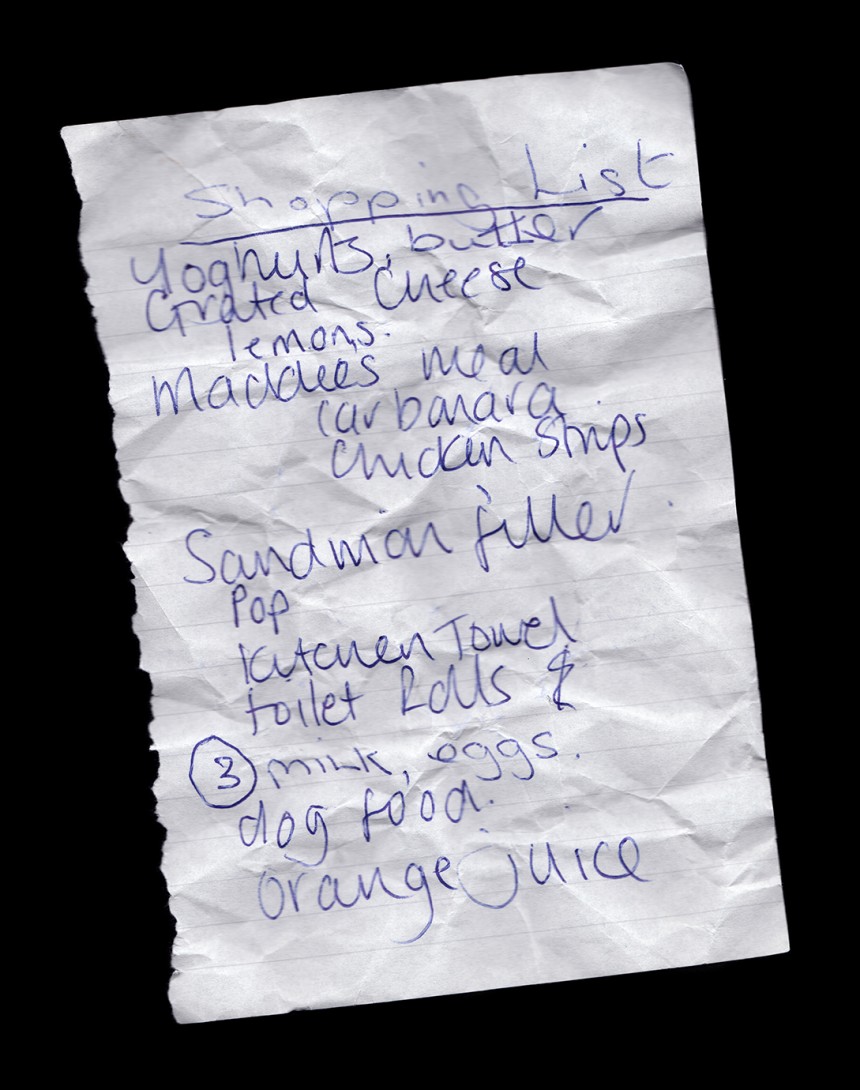 Shopping List
Yoghurts, butter
Grated Cheese
lemons.
Maddies meal
carbanara
Chicken Strips
Sandman filler
Pop
Kitchen Towel
toilet Rolls &
③ milk, eggs.
dog food.
orange juice